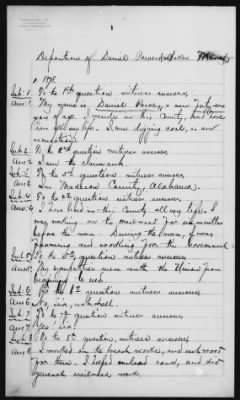 Deposition of Daniel
To the 1st question witness answers,
My name is Daniel
years of age. I reside in this County, and have
been all my life. I am digging coal, as an
occupation.
To the 2nd question witness answers
I am the claimant.
To the 3rd question witness answers
In Madison County, Alabama.
To the 4th question witness answers
I have lived in this County all my life. I
was working on the railroad for
before the war. During the war, I was
farming and working for the Government.
To the 5th question witness answers
My sympathies were with the Union from
beginning to end.
To the 6th question witness answers
No, sir,
To the 7th question witness answers
Yes sir!
To the 8th question, witness answers
I worked on the breast works, and cut wood
for them. I helped unload cars, and did
general railroad work.